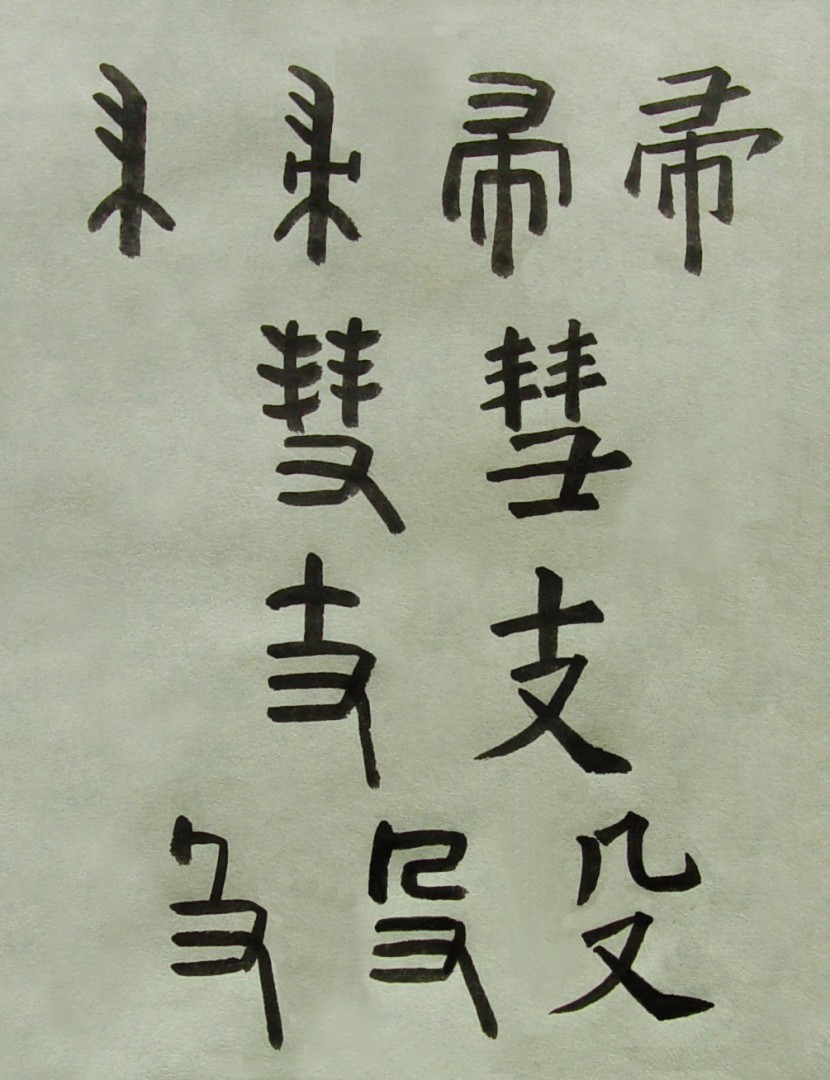 帚帚帚帚
彗彗
支支
殳殳殳